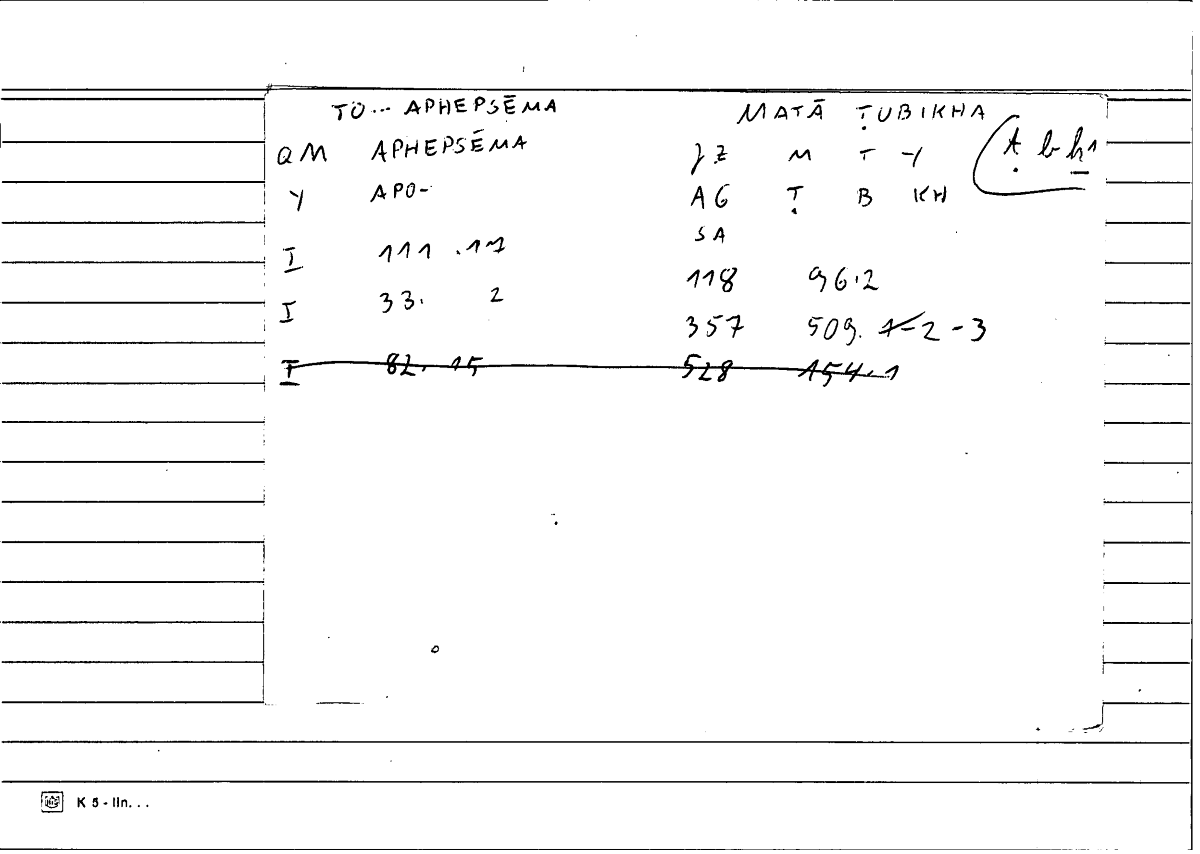 TO... APHEPSĒMA MATĀ ṬUBIKHA
QM APHEPSĒMA JZ M T Y ṭ b ḫ1
Y APO- AG Ṭ B KH
SA
I 111 .11 118 96.2
I 33. 2 357 509. 1-2-3
I 82. 15 528 154.1
K 5 - lln. . .